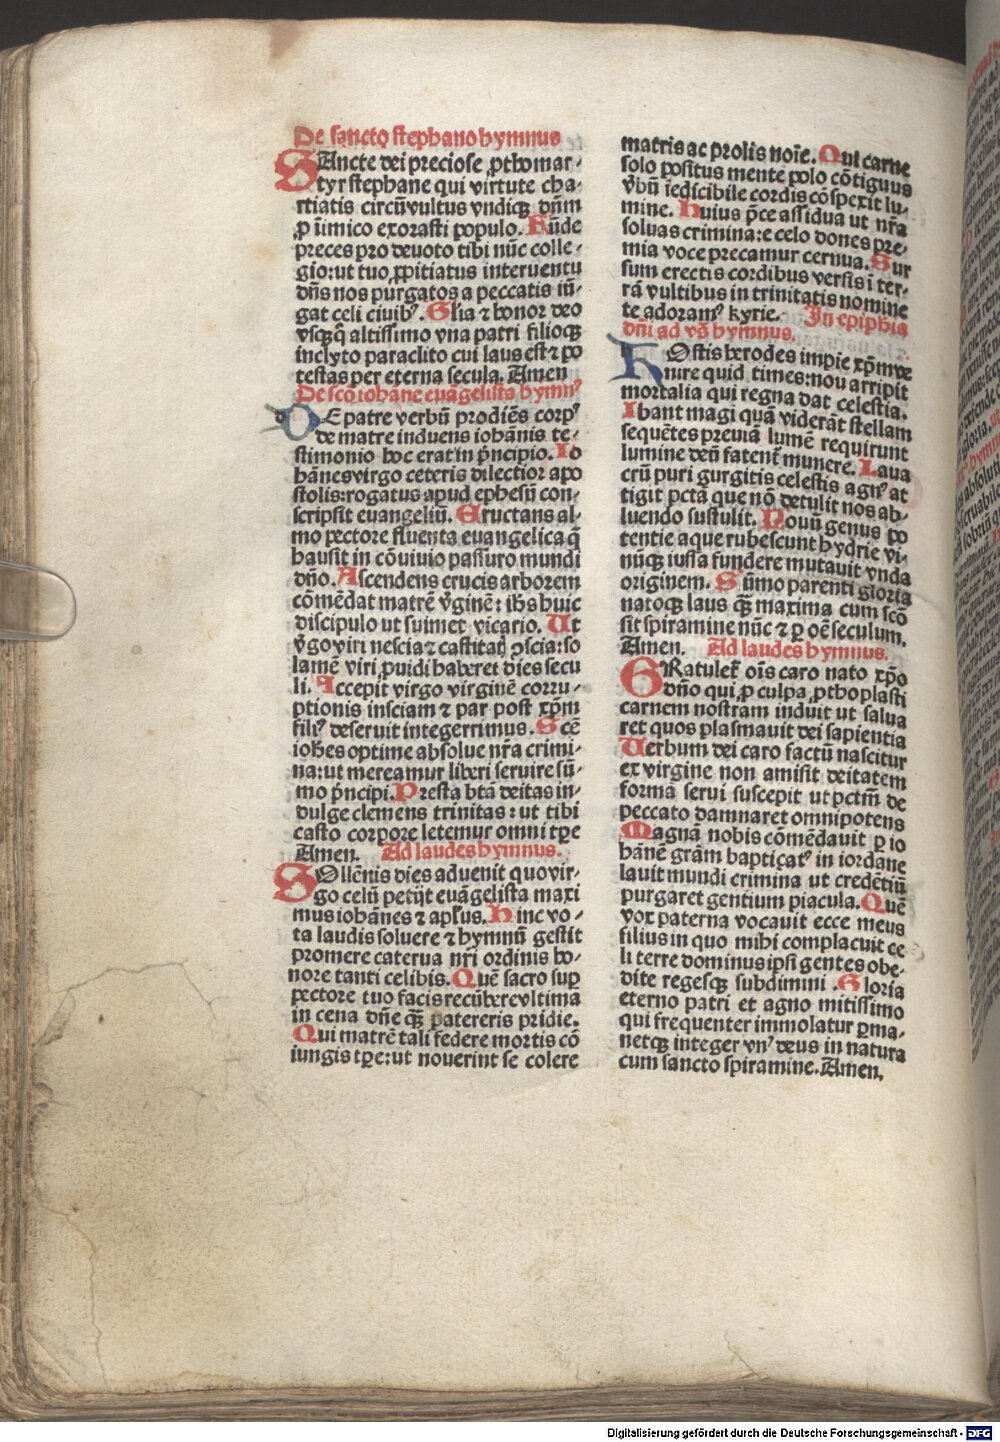 De sancto stephano hymnus
SAncte dei preciose ꝓthomar⸗
tyr stephane qui virtute cha⸗
ritatis circūvultus vndiqꝫ dn̄m
ꝓ īimico exorasti populo. Fūde
preces pro devoto tibi nūc colle⸗
gio: ut tuo ꝓpitiatus interventu
dn̄s nos purgatos a peccatis iū⸗
gat celi civibꝰ. Gl̄ia ⁊ honor deo
vsqꝫq̄ altissimo vna patri filioqꝫ
inclyto paraclito cui laus est ⁊ po
testas per eterna secula. Amen
De sc̄o iohāne euāgelista hymnꝰ
DE patre verbū prodiēs corpꝰ
de matre induens iohānis te⸗
stimonio hoc erat in p̄ncipio. Io
hānes virgo ceteris dilectior apo
stolis: rogatus apud ephesū con⸗
scripsit euangeliū. Eructans al⸗
mo pectore fluenta euangelica q̄
hausit in cōuiuio passuro mundi
dn̄o. Ascendens crucis arborem
cōmēdat matrē v̄ginē: ih̄s huic
discipulo ut suimet vicario. Ut
v̄go viri nescia ⁊ castitatꝭ ꝯscia: so
lamē viri ꝓuidi haberet dies secu
li. Accepit virgo virginē corru⸗
ptionis insciam ⁊ par post xp̄m
filiꝰ deseruit integerrimus. Scē
ioh̄es optime absolue nr̄a crimi⸗
na: ut mereamur liberi seruire sū⸗
mo p̄ncipi. Presta btā deitas in⸗
dulge clemens trinitas: ut tibi
casto corpore letemur omni tp̄e
Amen. Ad laudes hymnus.
SOllēnis dies aduenit quo vir⸗
go celū petijt euāgelista maxi
mus iohānes ⁊ apl̄us. Hinc vo⸗
ta laudis soluere ⁊ hymnū gestit
promere caterua nr̄i ordinis ho⸗
nore tanti celibis. Quē sacro sup̄
pectore tuo facis recūbere vltima
in cena dn̄e qꝫ̄ patereris pridie.
Qui matrē tali federe mortis cō
iungis tp̄e: ut nouerint se colere
matris ac prolis noīe. Qui carne
solo positus mente polo cōtiguus
v̄bū īedicibile cordis cōspexit lu⸗
mine. Huius p̄ce assidua ut nr̄a
soluas crimina: e celo dones pre⸗
mia voce precamur cernua. Sur
sum erectis cordibus versis ī ter⸗
rā vultibus in trinitatis nomine
te adoramꝰ kyrie. In epiphia
dn̄i ad vs̄ hymnus.
HOstis herodes impie xp̄m ve
nire quid times: nou arripit
mortalia qui regna dat celestia.
Ibant magi quā viderāt stellam
sequētes preuiā lumē requirunt
lumine deū fatent᷑ munere. Laua
crū puri gurgitis celestis agnꝰ at
tigit pctā que nō detulit nos ab⸗
luendo sustulit. Nouū genus po
tentie aque rubescunt hydrie vi⸗
nūqꝫ iussa fundere mutauit vnda
originem. Sūmo parenti gloria
natoqꝫ laus qꝫ̄ maxima cum scō
sit spiramine nūc ⁊ ꝑ oē seculum.
Amen. Ad laudes hymnus.
GRatulet᷑ oīs caro nato xp̄o
dn̄o qui ꝓ culpa ꝓthoplasti
carnem nostram induit ut salua
ret quos plasmauit dei sapientia
Uerbum dei caro factū nascitur
ex virgine non amisit deitatem
formā serui suscepit ut pctm̄ de
peccato damnaret omnipotens
Magnā nobis cōmēdauit ꝑ io
hānē grām baptiçatꝰ in iordane
lauit mundi crimina ut credētiū
purgaret gentium piacula. Quē
vox paterna vocauit ecce meus
filius in quo mihi complacuit ce
li terre dominus ipsi gentes obe⸗
dite regesqꝫ subdimini. Gloria
eterno patri et agno mitissimo
qui frequenter immolatur ꝑma⸗
netqꝫ integer vnꝰ deus in natura
cum sancto spiramine. Amen.
Digitalisierung gefördert durch die Deutsche Forschungsgemeinschaft - DFG